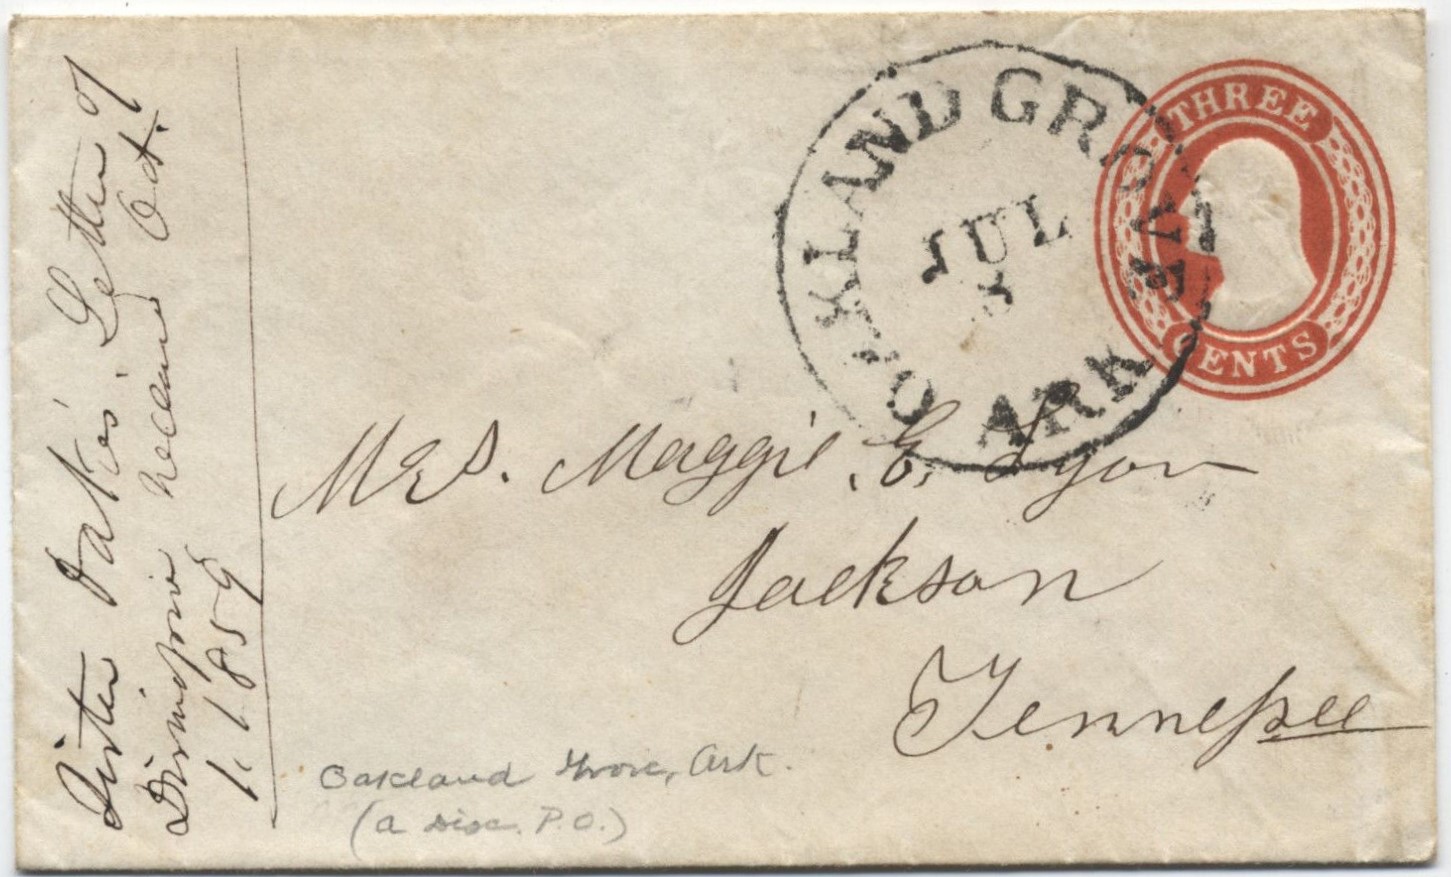 THREE
CENTS
OAKLAND GROVE
ARK
JUL
Mrs. Maggie. E. Lyon
Jackson
Tennessee
Sister Letter of
received Oct.
1. 1859
Oakland Grove, Ark.
(a Disc. P.O.)